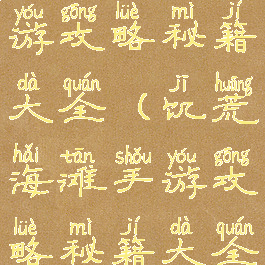 yóu gōng lüè mì jí
游攻略秘籍
dà quán jī huāng
大全（饥荒
hǎi tān shǒu yóu gōng
海滩手游攻
lüè mì jí dà quán
略秘籍大全